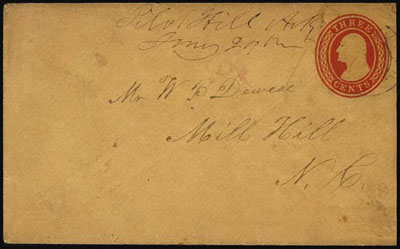 Hill Ark
THREE
CENTS
Mr W B Dewese
Mill Hill
N. C.